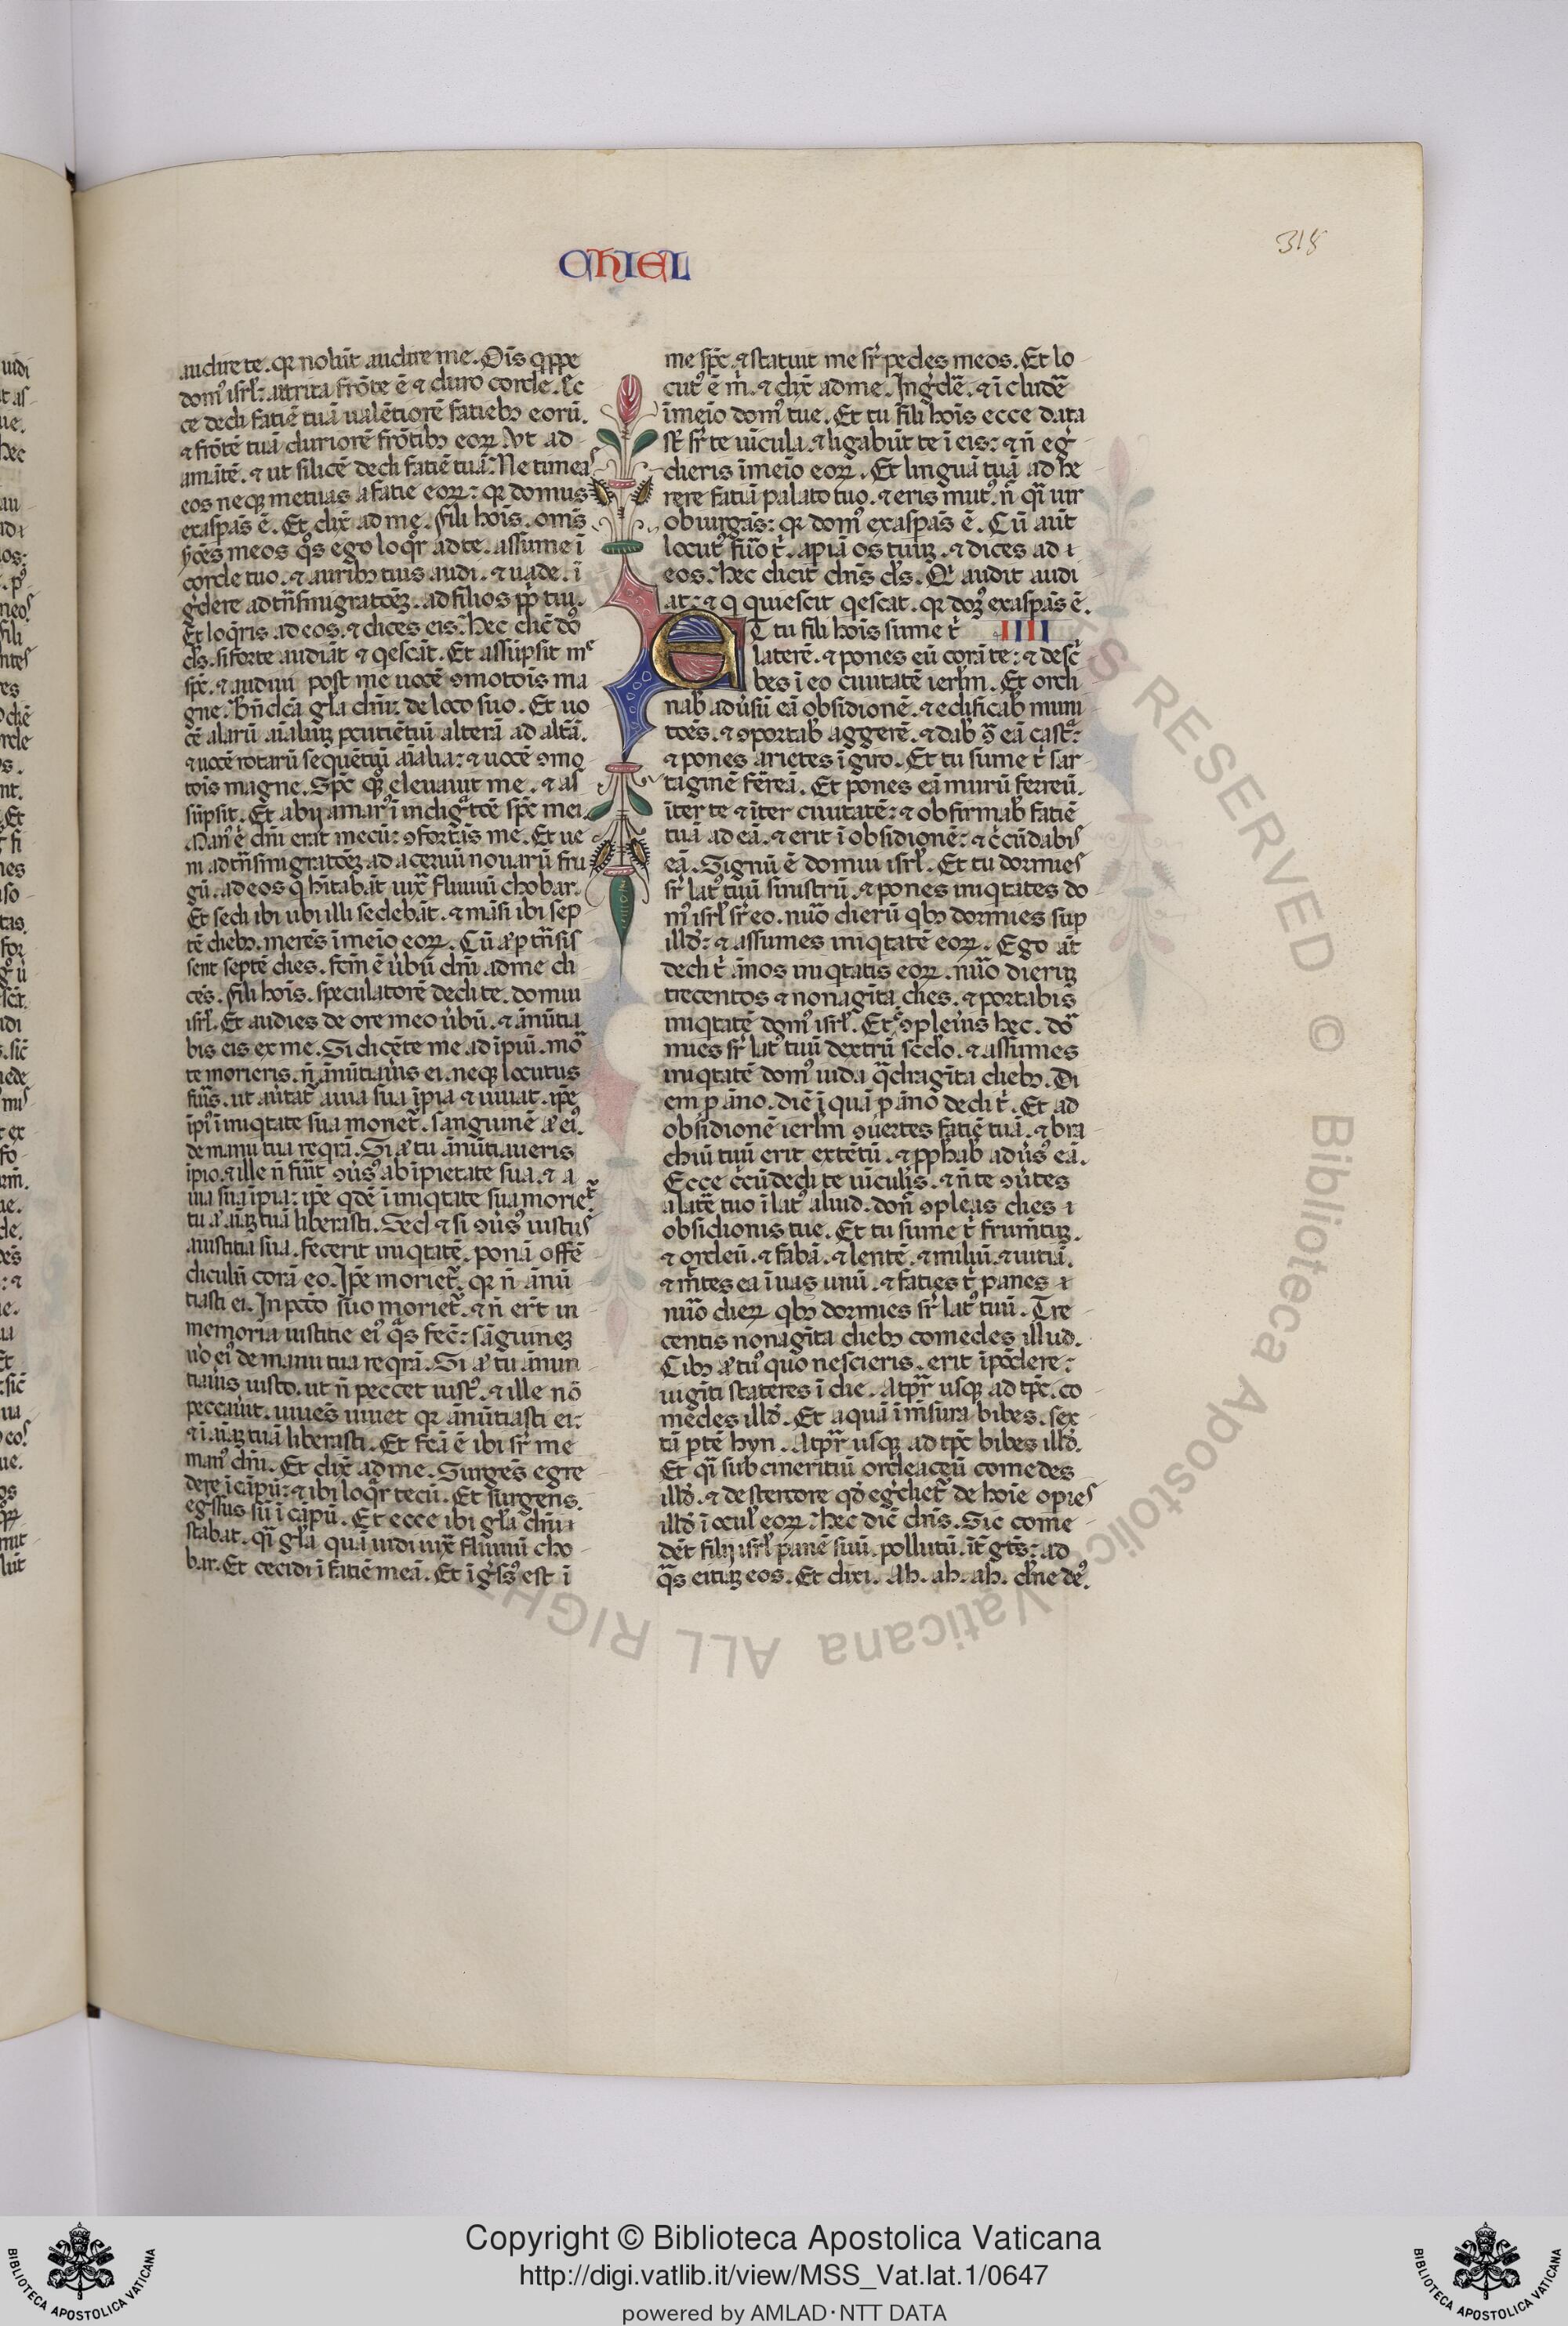 CHIEL
318
audire te. qr nolūt audire me. Oīs q̄ppe
domꝰ isrl̄: attrita frōte ē & duro corde. Ec
ce dedi fatiē tuā ualētiorē fatiebꝫ eorū.
& frōtē tuā duriorē frōtibꝫ eoꝝ. Vt ad
amātē. & ut silicē dedi fatiē tuā. Ne timeas
eos neqꝫ metuas a fatie eoꝝ: qr domus
exaspās ē. Et dix̄ ad me. fili hoīs. omīs
s̄ōes meos q̄s ego loq̄r ad te. assume ī
corde tuo. & auribꝫ tuis audi. & uade. ī
ḡdere ad tn̄smigratōeꝫ. ad filios pp̄l̄i tui.
Et loq̄ris ad eos. & dices eis. hec dic̄ dō
ds̄. si forte audiāt & q̄escāt. Et assūpsit me
sp̄c. & audiui post me uocē ꝯmotōis ma
gne. bn̄dc̄a gl̄a dn̄i: de loco suo. Et uo
cē alarū aīaliuꝫ pcutiētiū alterā ad altā.
& uocē rotarū sequētiū aīalia: & uocē ꝯmo
tōis magne. Sp̄c qꝫ eleuauit me. & as
sūpsit. Et abij amarꝰ ī indiḡtōē sp̄c mei.
Manꝰ ē dn̄i erat mecū: ꝯfortās me. Et ue
ni ad tn̄smigratōeꝫ ad aceruū nouarū fru
gū. ad eos q̄ hītabāt iux̄ fluuiū chobar.
Et sedi ibi ubi illi sedebāt. & māsi ibi sep
tē diebꝫ. merēs ī meīo eoꝝ. Cū āt p tn̄sis
sent septē dies. fcm̄ ē ūbū dn̄i ad me di
cēs. fili hoīs. speculatorē dedi te. domui
isrl̄. Et audies de ore meo ūbū. & ānūtia
bis eis ex me. Si dicēte me. ad īpiū. mō
te morieris. n̄ ānūtiau̅is ei. neqꝫ locutus
fu̅is. ut au̅tat̄ a uia sua īpia & uiuat. ip̄e
īpiꝰ ī iniq̄tate sua moriet̄. sanguinē āt eiꝰ.
de manu tua req̄rā. Si āt tu ānūtiaueris
īpio. & ille n̄ fu̅it ꝯu̅sꝰ ab īpietate sua. & a
uia sua īpia: ip̄e q̄dē ī iniq̄tate sua moriet̄
tu āt aīaꝫ tuā liberasti. Sed & si ꝯu̅sꝰ iustus
a iustitia sua. fecerit iniq̄tatē. ponā offē
diculū corā eo. Ip̄e moriet̄. qr n̄ ānū
tiasti ei. In pcc̄o suo moriet̄. & n̄ er̄t in
memoria iustitie eiꝰ q̄s fec̄: sāguineꝫ
u̅o eiꝰ de manu tua req̄rā. Si āt tu ānun
tiau̅is iusto. ut n̄ peccet iustꝰ. & ille nō
peccau̅it. uiuēs uiuet qr ānūtiasti ei:
& tu aīaꝫ tuā liberasti. Et fcā ē ibi sr̄ me
manꝰ dn̄i. Et dix̄ ad me. Surgēs egre
dere ī cāpū: & ibi loq̄r tecū. Et surgens.
eg̅ssus sū ī cāpū. Et ecce ibi gl̄a dn̄i
stabat. q̄i gl̄a quā uidi iux̄ fluuiū cho
bar. Et cecidi ī fatiē meā. Et īg̅ssꝰ est ī
me sp̄c. & statuit me sr̄ pedes meos. Et lo
cutꝰ ē m̄. & dix̄ ad me. Ing̅dē. & ī cludē
ī meīo domꝰ tue. Et tu fili hoīs ecce data
st̄ sr̄ te uīcula. & ligabūt te ī eis: & n̄ eg̅
dieris ī meīo eoꝝ. Et linguā tuā ad he
rere fatiā palato tuo. & eris mutꝰ. n̄ q̄i uir
obiurgās: qr domꝰ exaspās ē. Cū aūt
locutꝰ fu̅o t̄. apiā os tuuꝫ. & dices ad
eos. hec dicit dn̄s ds̄. Q̄ audit audi
at: & q̄ quiescit q̄escat. qr doꝫ exaspās ē.
ET tu fili hoīs sume t̄ IIII
laterē. & pones eū corā te: & desc̄
bes ī eo ciuitatē ierl̄m. Et ordi
nab̄ adūsū eā obsidionē. & edificab̄ muni
tōēs. & ꝯportab̄ aggerē. & dab̄ ꝯ̄ eā cast̄:
& pones arietes ī giro. Et tu sume t̄ sar
taginē fērēā. Et pones eā murū ferreū.
īter te & īter ciuitatē: & obfirmab̄ fatiē
tuā ad eā. & erit ī obsidionē: & c̄cūdabis
eā. Signū ē domui isrl̄. Et tu dormies
sr̄ latꝰ tuū sinistrū. & pones iniq̄tates do
mꝰ isrl̄ sr̄ eo. nūo dierū qbꝫ dormies sup
illd̄: & assumes iniq̄tatē eoꝝ. Ego āt
dedi t̄ ānos iniq̄tatis eoꝝ. nūo dieruꝫ
trecentos & nonagīta dies. & portabis
iniq̄tatē domꝰ isrl̄. Et cū ꝯpleu̅is hec. dō
mies sr̄ latꝰ tuū dextrū scd̄o. & assūmes
iniq̄tatē domꝰ iuda q̄dragīta diebꝫ. Di
em p āno. diē īquā p āno dedi t̄. Et ad
obsidionē ierl̄m ꝯu̅tes fatiē tuā. & bra
chiū tuū erit extētū. & pph̄ab̄ adūsꝰ eā.
Ecce c̄cūdedi te uīculis. & n̄ te ꝯu̅tes
a latē tuo ī latꝰ aliud. don̄ ꝯpleas dies
obsidionis tue. Et tu sume t̄ frum̄tuꝫ.
& ordeū. & fabā. & lentē. & miliū. & uitiā.
& m̄tes ea ī uas unū. & faties t̄ panes
nūo dieꝝ qbꝫ dormies sr̄ latꝰ tuū. Tre
centis nonagīta diebꝫ comedes illud.
Cibꝫ āt tuꝰ quo nescieris. erit ī pōdere:
uigīti stateres ī die. A tp̄r usqꝫ ad tp̄c. co
medes illd̄. Et aquā ī m̄sura bibes. sex
tā ptē hyn. A tp̄r usqꝫ ad tp̄c bibes illd̄.
Et q̄i subcineritiū ordeaceū comedes
illd̄. & de stercore qd̄ eg̅diet̄ de hoīe opies
illd̄ ī oculꝭ eoꝝ. hec dic̄ dn̄s. Sic come
dēt filij isrl̄ panē suū. pollutū. īt̄ gt̄s: ad
q̄s eiciaꝫ eos. Et dixi. Ah. ah. ah. dn̄e dēꝰ.
Copyright © Biblioteca Apostolica Vaticana
http://digi.vatlib.it/view/MSS_Vat.lat.1/0647
powered by AMLAD·NTT DATA